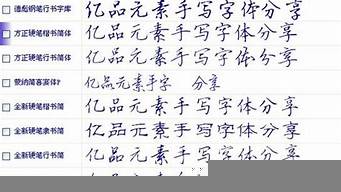 德彪钢笔行书字库 亿品元素手写字体分享
方正硬笔行书简 亿品元素手写字体分享
方正硬笔楷书简 亿品元素手写字体分享
蒙纳简喜宴体? 亿品元素手字 分享
全新硬笔楷书简 亿品元素手写字体分享
全新硬笔隶书简 亿品元素手写字体分享
全新硬笔行书简 亿品元素手写字体分享